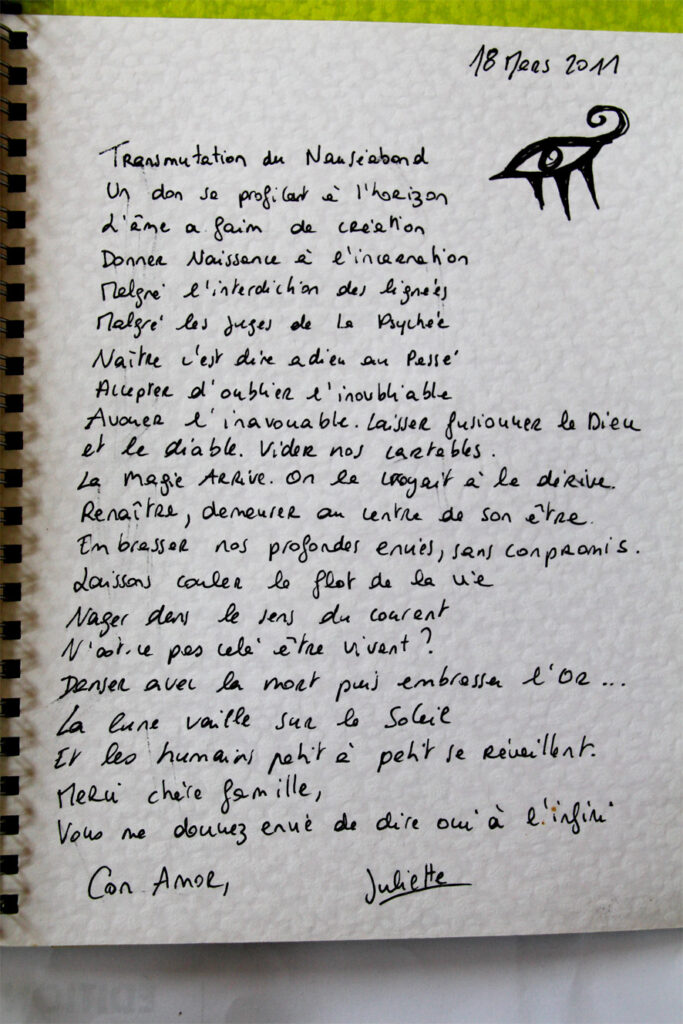 18 Mars 2011
Transmutation du Nauséabond
Un don se profilant à l'horizon
L'âme a faim de création
Donner Naissance à l'incarnation
Malgré l'interdiction des lignées
Malgré les juges de la Psychée
Naître c'est dire adieu au Passé
Accepter d'oublier l'inoubliable
Avouer l'inavouable. Laisser fusionner le Dieu
et le diable. Vider nos cartables.
La Magie ARRive. On la croyait à la dérive.
Renaître, demeurer au centre de son être.
Embrasser nos profondes envies, sans compromis.
Laissons couler le flot de la vie
Nager dans le sens du courant
N'est-ce pas cela être vivant ?
Danser avec la mort puis embrasser l'OR ...
La lune veille sur le Soleil
Et les humains petit à petit se réveillent.
Merci chère famille,
Vous me donnez envie de dire oui à l'infini
Con Amor,
Juliette
EDITIO